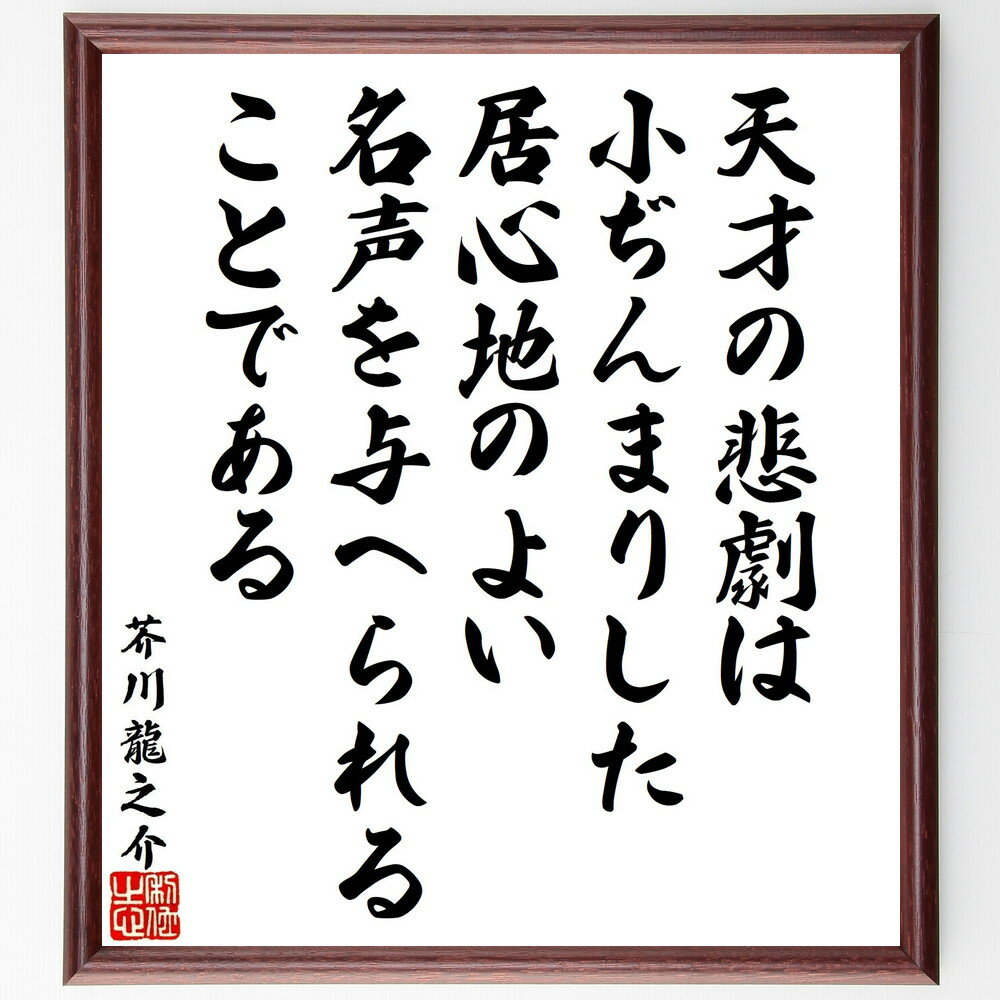 天才の悲劇は
小ぢんまりした
居心地のよい
名声を与へられる
ことである
芥川龍之介